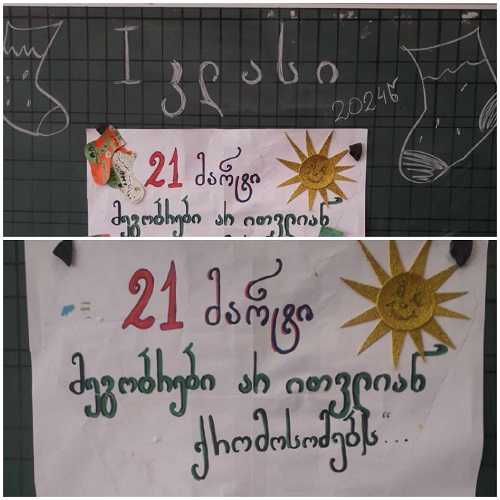 I კლასი
2024წ
21 მარტი
მეგობრები არ ითვლიან
21 მარტი
მეგობრები არ ითვლიან
ქრომოსომებს“...